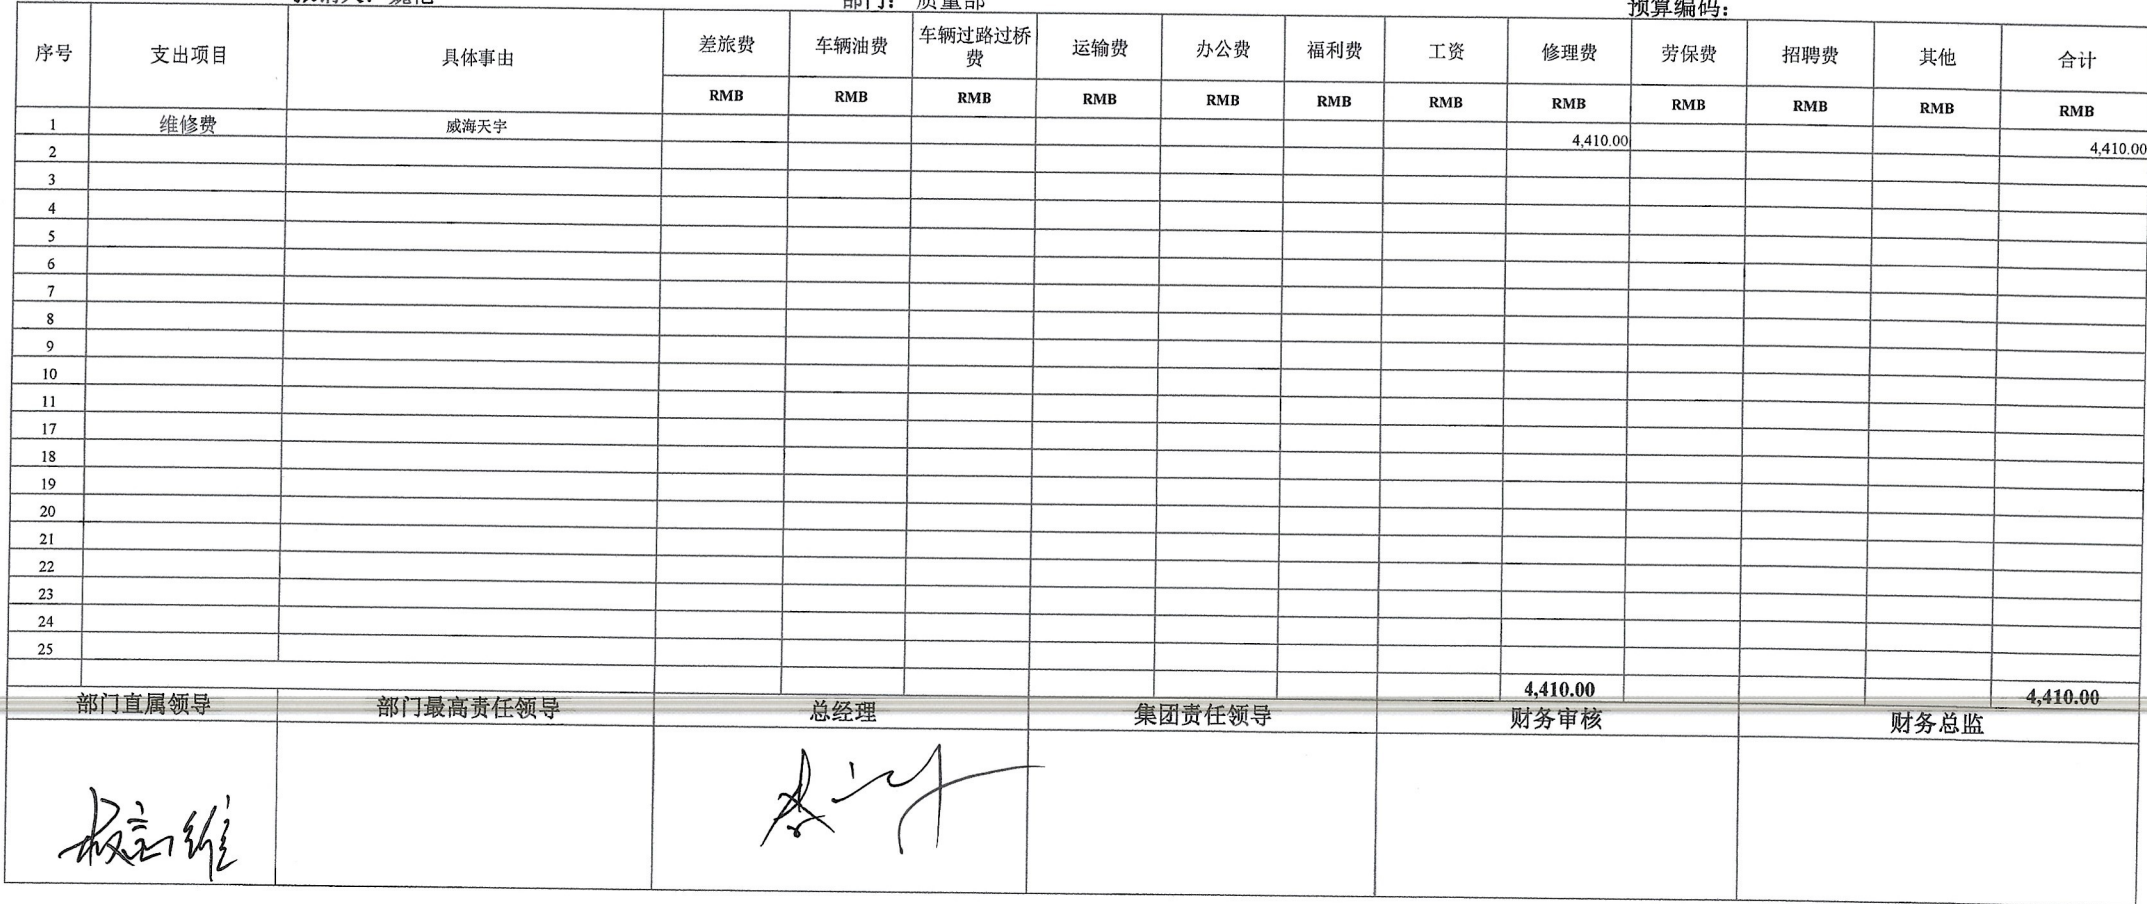 部门： 质量部 预算编码：
序号 支出项目 具体事由 差旅费 车辆油费 车辆过路过桥费 运输费 办公费 福利费 工资 修理费 劳保费 招聘费 其他 合计
RMB RMB RMB RMB RMB RMB RMB RMB RMB RMB RMB RMB
1 维修费 威海天宇 4,410.00 4,410.00
2
3
4
5
6
7
8
9
10
11
17
18
19
20
21
22
23
24
25
4,410.00 4,410.00
部门直属领导 部门最高责任领导 总经理 集团责任领导 财务审核 财务总监